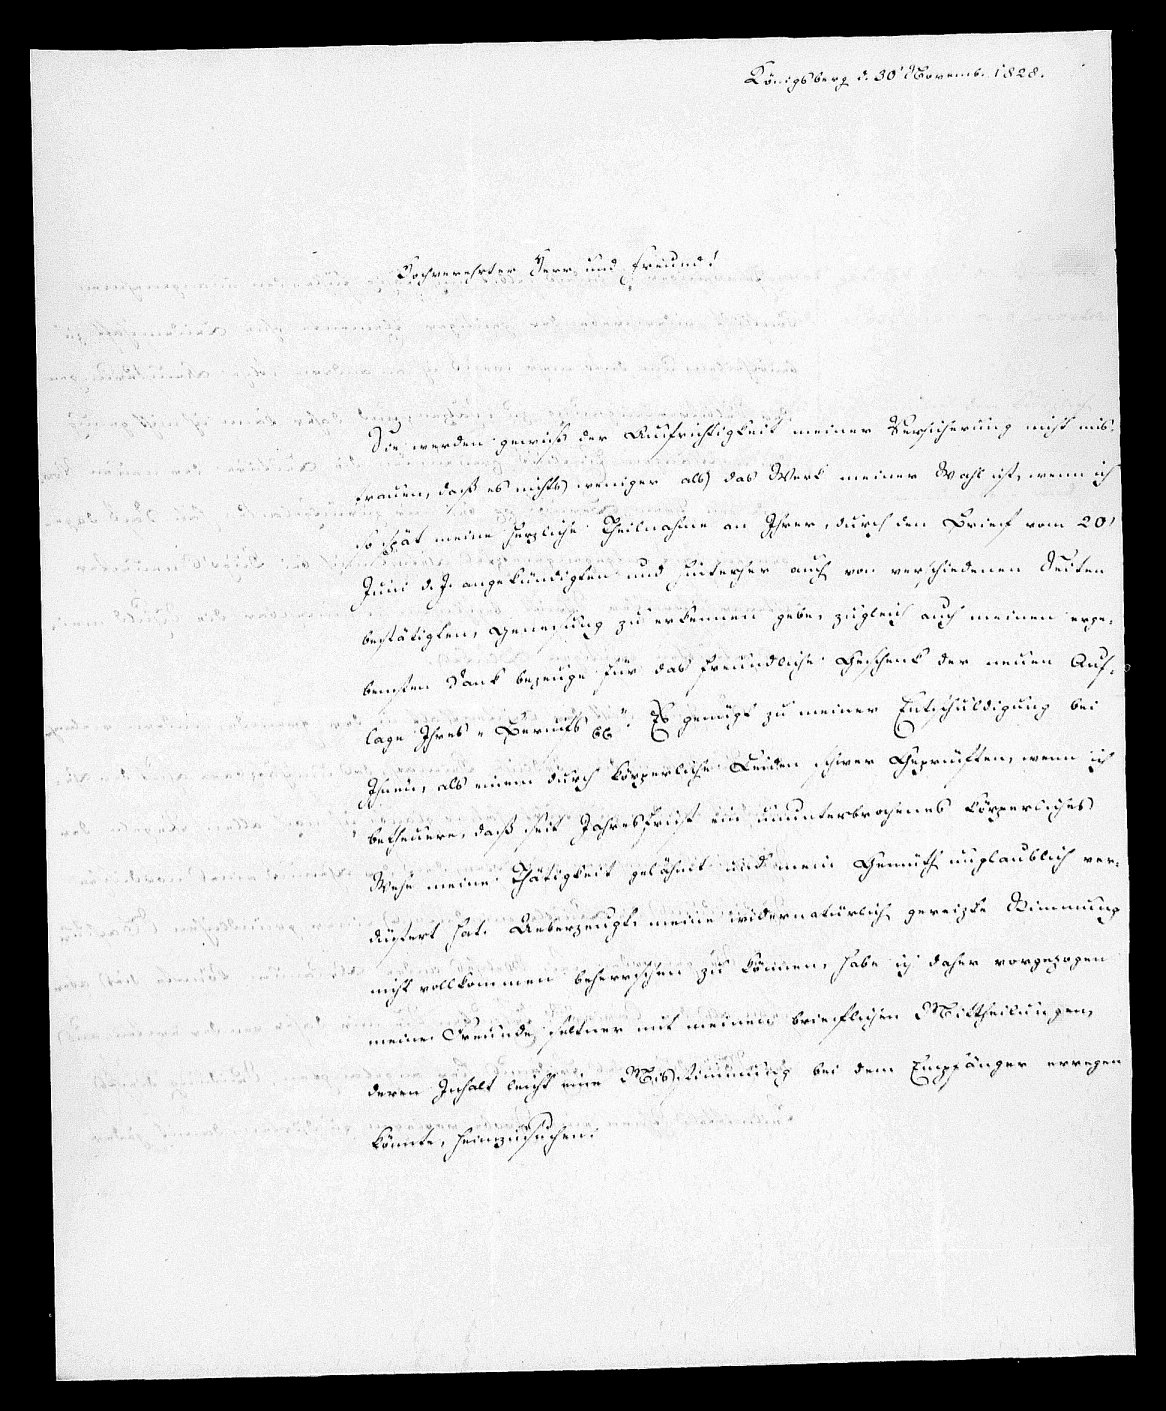 Königsberg d. 30' Novemb. 1828.
Hochverehrter Herr und Freund!
Sie werden gewiß der Aufrichtigkeit meiner Versicherung nicht mis-
trauen, daß es nichts weniger als das Werk meiner Wahl ist, wenn ich
so spät meine herzliche Theilnahme an Ihrer, durch den Brief vom 20'
Juni d. J. angekündigten und hinterher auch von verschiedenen Seiten
bestätigten, Genesung zu erkennen gebe, zugleich auch meinen erge-
bensten Dank bezeuge für das freundliche Geschenk der neuen Auf-
lage Ihres „ Berufs “. Es genügt zu meiner Entschuldigung bei
Ihnen, als einem durch körperliche Leiden schwer Geprüften, wenn ich
betheuere, daß seit Jahresfrist ein ununterbrochenes körperliches
Wehe meine Thätigkeit gelähmt und mein Gemüth unglaublich ver-
düstert hat. Ueberzeugt, meine widernatürlich gereizte Stimmung
nicht vollkommen beherrschen zu können, habe ich daher vorgezogen
meine Freunde seltner mit meinen brieflichen Mittheilungen,
deren Inhalt leicht eine Misstimmung bei dem Empfänger erregen
könnte, heimzusuchen.